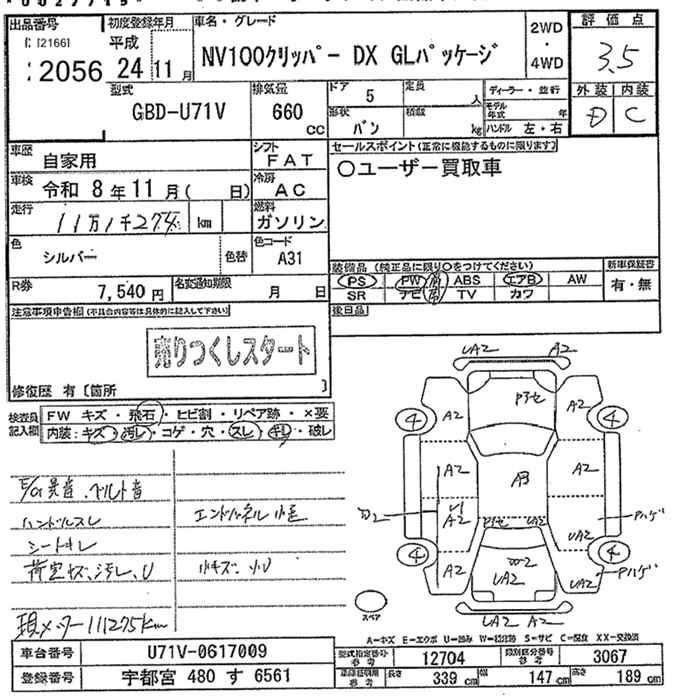 出品番号 初度登録年月 車名・グレード 2WD ・ 4WD 評価点
[21661
2056 平成 24年 11月 NV100クリッパー DX GLパッケージ 3.5
型式 GBD-U71V 排気量 660 CC ドア 5 定員 人 ディーラー・並行 外装 内装
形状 バン 積載 kg モデル年式 年 ハンドル 左・右 D C
車歴 自家用 シフト FAT セールスポイント(正常に機能するものに限ります)
車検 令和 8年 11月( 日) 冷房 AC 〇ユーザー買取車
走行 11万1千274 km 燃料 ガソリン
色 シルバー 色替 色コード A31 装備品 (純正品に限り〇をつけてください) 新車保証書
R券 7,540円 名変通知期限 月 日 PS PW ABS エアB AW 有・無
SR ナビ TV カワ
注意事項申告欄(不具合内容等は具体的に記入して下さい) 後日品
売りつくしスタート
修復歴 有〔箇所 〕
検査員記入欄 FW キズ・飛石・ヒビ割・リペア跡・×要
内装:キズ・汚レ・コゲ・穴・スレ・キレ・破レ
E/G異音、ベルト音
ハンドルスレ エンドパネル小歪
シートキレ
荷室キズ、汚レ、U 小キズ、小U
現メーター111275km
UA2 A2
Pヌセ
④ A2 A2 ④
A2 A3 A2
U1 A2 Pハゲ
UA2 UA2
④ A2 W2 UA2 UA2 Pハゲ ④
UA2 A2
スペア
A−キズ E−エクボ U−凹み W−補修跡 S−サビ C−腐食 XX−交換済
車台番号 U71V-0617009 型式指定番号参考 12704 類別区分番号参考 3067
登録番号 宇都宮 480 す 6561 長さ 339 cm 幅 147 cm 高さ 189 cm